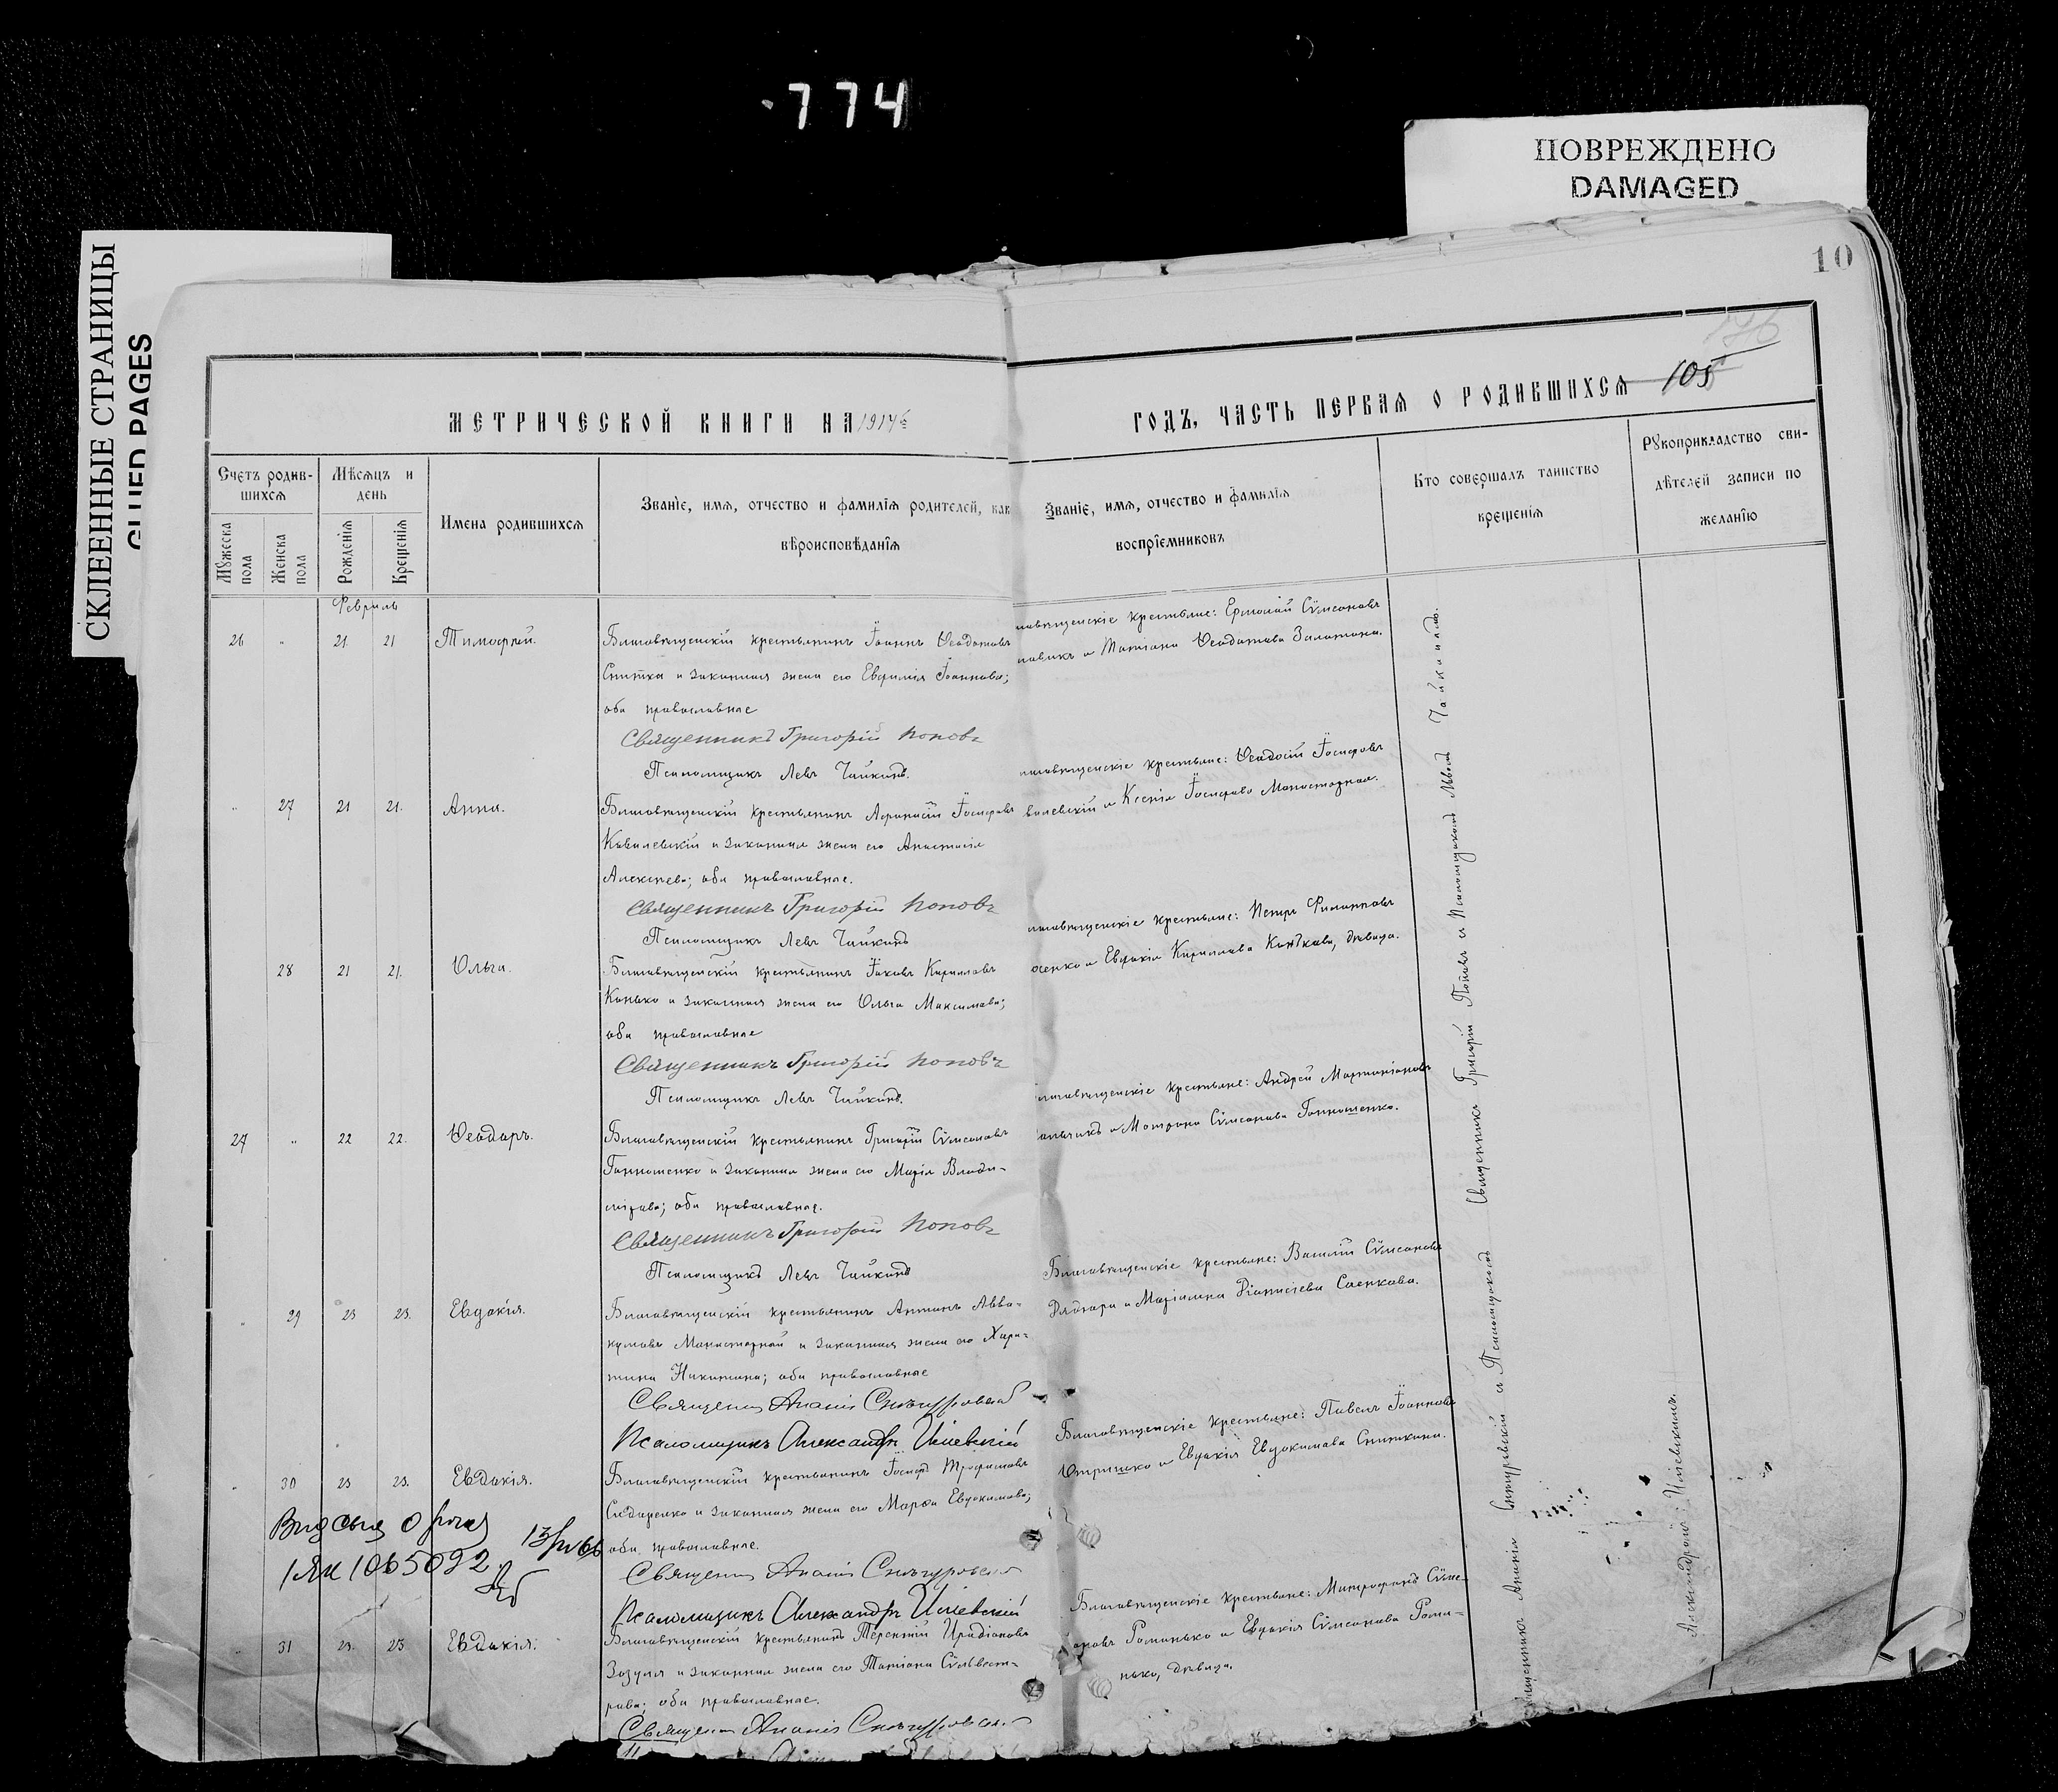 774
ПОВРЕЖДЕНО
DAMAGED
СКЛЕЕННЫЕ СТРАНИЦЫ
GLUED PAGES
10
105
МЕТРИЧЕСКОЙ КНИГИ НА 1914 г.
ГОДЪ, ЧАСТЬ ПЕРВАЯ О РОДИВШИХСЯ
Счетъ родив-
шихся
Мужеска
пола
Женска
пола
Мѣсяцъ и
день
Рожденія
Крещенія
Имена родившихся
Званіе, имя, отчество и фамилія родителей, как
вѣроисповѣданія
Званіе, имя, отчество и фамилія
воспріемниковъ
Кто совершалъ таинство
крещенія
Рукоприкладство сви-
дѣтелей записи по
желанію
Февраль
26 " 21. 21 Тимофей.
Благовѣщенскій крестьянинъ Іоаннъ Ѳеодотовъ
и законная жена его Евфимія Іоаннова;
оба православные
Священникъ Григорій Поповъ
Псаломщикъ Левъ Чайкинъ.
крестьяне: Ермолай Сѵмеоновъ
и Татіана Ѳеодотова
" 27 21 21. Анна.
Благовѣщенскій крестьянинъ Афанасій Іосифовъ
Ковалевскій и законная жена его Анастасія
Алексѣева; оба православные.
Священникъ Григорій Поповъ
Псаломщикъ Левъ Чайкинъ
крестьяне: Ѳеодосій Іосифовъ
валевскій и Ксенія Іосифова Монастырная.
28 21 21. Ольга.
Благовѣщенскій крестьянинъ Іаковъ Кирилловъ
Конько и законная жена его Ольга Максимова;
оба православные
Священникъ Григорій Поповъ
Псаломщикъ Левъ Чайкинъ.
крестьяне: Петръ Филипповъ
и Евдокія Кириллова Конькова, дѣвица.
27 " 22 22. Ѳеодоръ.
Благовѣщенскій крестьянинъ Григорій Сѵмеоновъ
Ганношенко и законная жена его Марія Влади-
мірова; оба православные.
Священникъ Григорій Поповъ
Псаломщикъ Левъ Чайкинъ
крестьяне: Андрей Мартиніановъ
и Матрона Сѵмеонова Ганношенко.
" 29 23 23. Евдокія.
Благовѣщенскій крестьянинъ Антонъ Авва-
кумовъ Монастырный и законная жена его Хари-
тина Никитина; оба православные
Псаломщикъ Александръ
Благовѣщенскіе крестьяне: Василій Сѵмеоновъ
и Маріамна Діонисіева
" 30 23 23. Евдокія.
Благовѣщенскій крестьянинъ Іосифъ Трофимовъ
Сидоренко и законная жена его Марфа Евдокимова;
оба православные.
Псаломщикъ Александръ
Благовѣщенскіе крестьяне: Павелъ Іоанновъ
и Евдокія Евдокимова
1065092
" 31 23. 23 Евдокія.
Благовѣщенскій крестьянинъ Терентій Иродіоновъ
Зозуля и законная жена его Татіана Сѵльвест-
рова; оба православные.
Благовѣщенскіе крестьяне: Митрофанъ Сѵме-
оновъ Романько и Евдокія Сѵмеонова Рома-
нько, дѣвица.
Священникъ Григорій Поповъ и Псаломщикъ Левъ Чайкинъ.